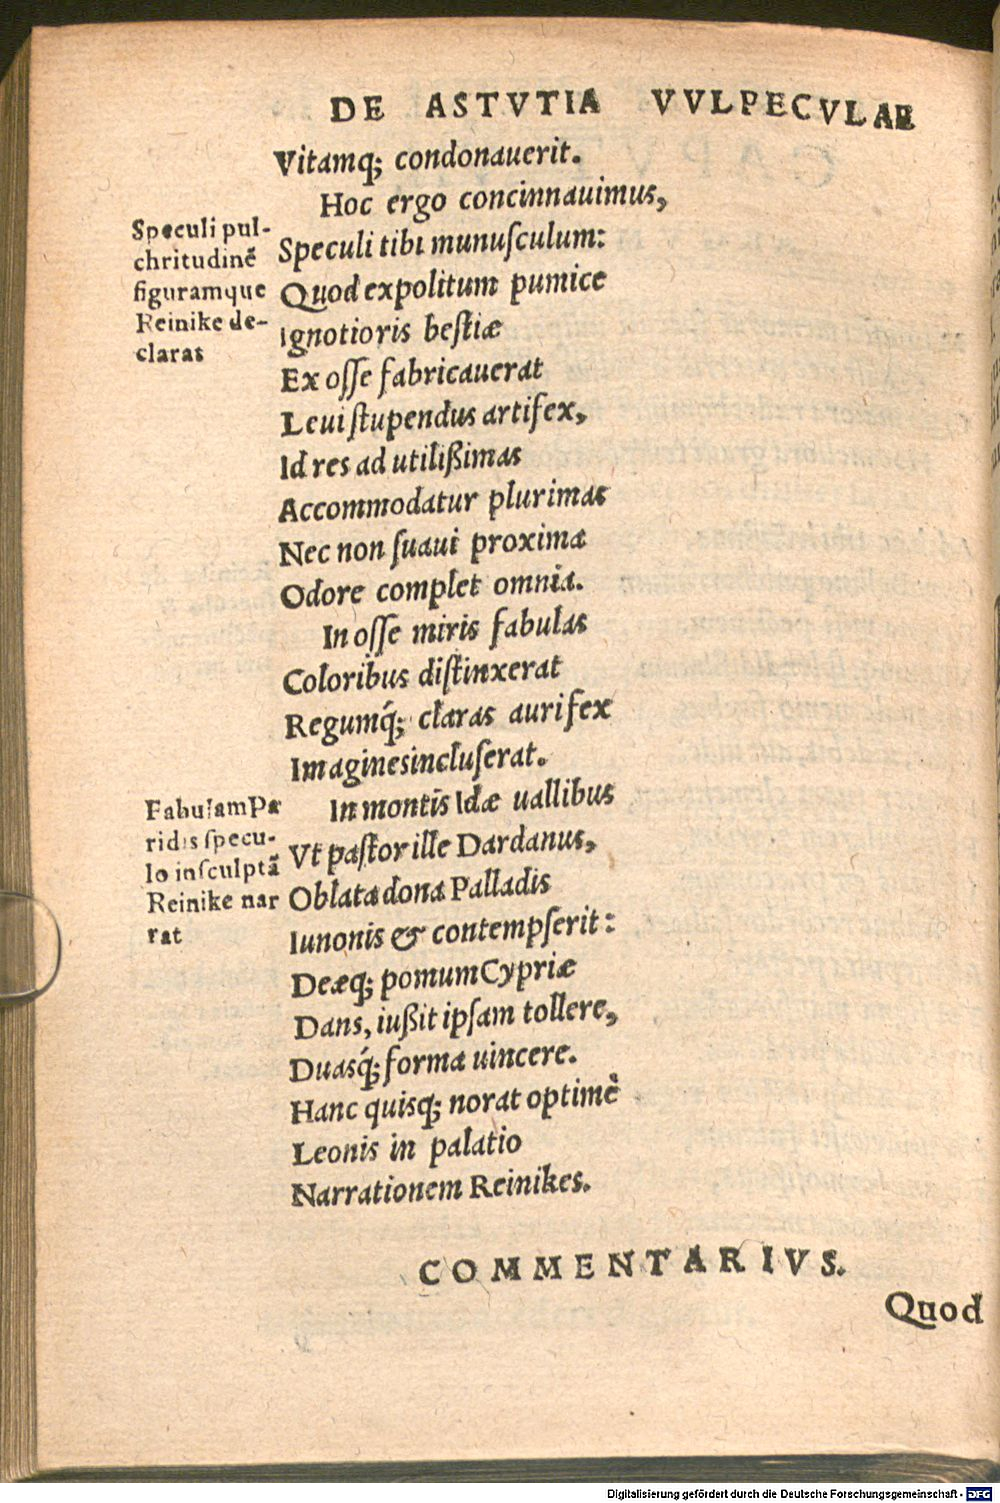 DE ASTVTIA VVLPECVLAE
Vitamq; condonauerit.
Hoc ergo concinnauimus,
Speculi pul-
chritudinẽ
figuramque
Reinike de-
claras
Speculi tibi munuſculum:
Quod expolitum pumice
Ignotioris beſtiæ
Ex oſſe fabricauerat
Leui ſtupendus artifex,
Id res ad utilißimas
Accommodatur plurimas
Nec non ſuaui proxima
Odore complet omnia.
In oſſe miris fabulas
Coloribus diſtinxerat
Regumq́; claras aurifex
Imagines incluſerat.
Fabulam Pa
ridis ſpecu-
lo inſculptã
Reinike nar
rat
In montis Idæ uallibus
Vt paſtor ille Dardanus,
Oblata dona Palladis
Iunonis & contempſerit:
Deæq; pomum Cypriæ
Dans, iußit ipſam tollere,
Duasq́; forma uincere.
Hanc quisq; norat optimè
Leonis in palatio
Narrationem Reinikes.
COMMENTARIVS.
Quod
Digitalisierung gefördert durch die Deutsche Forschungsgemeinschaft - DFG